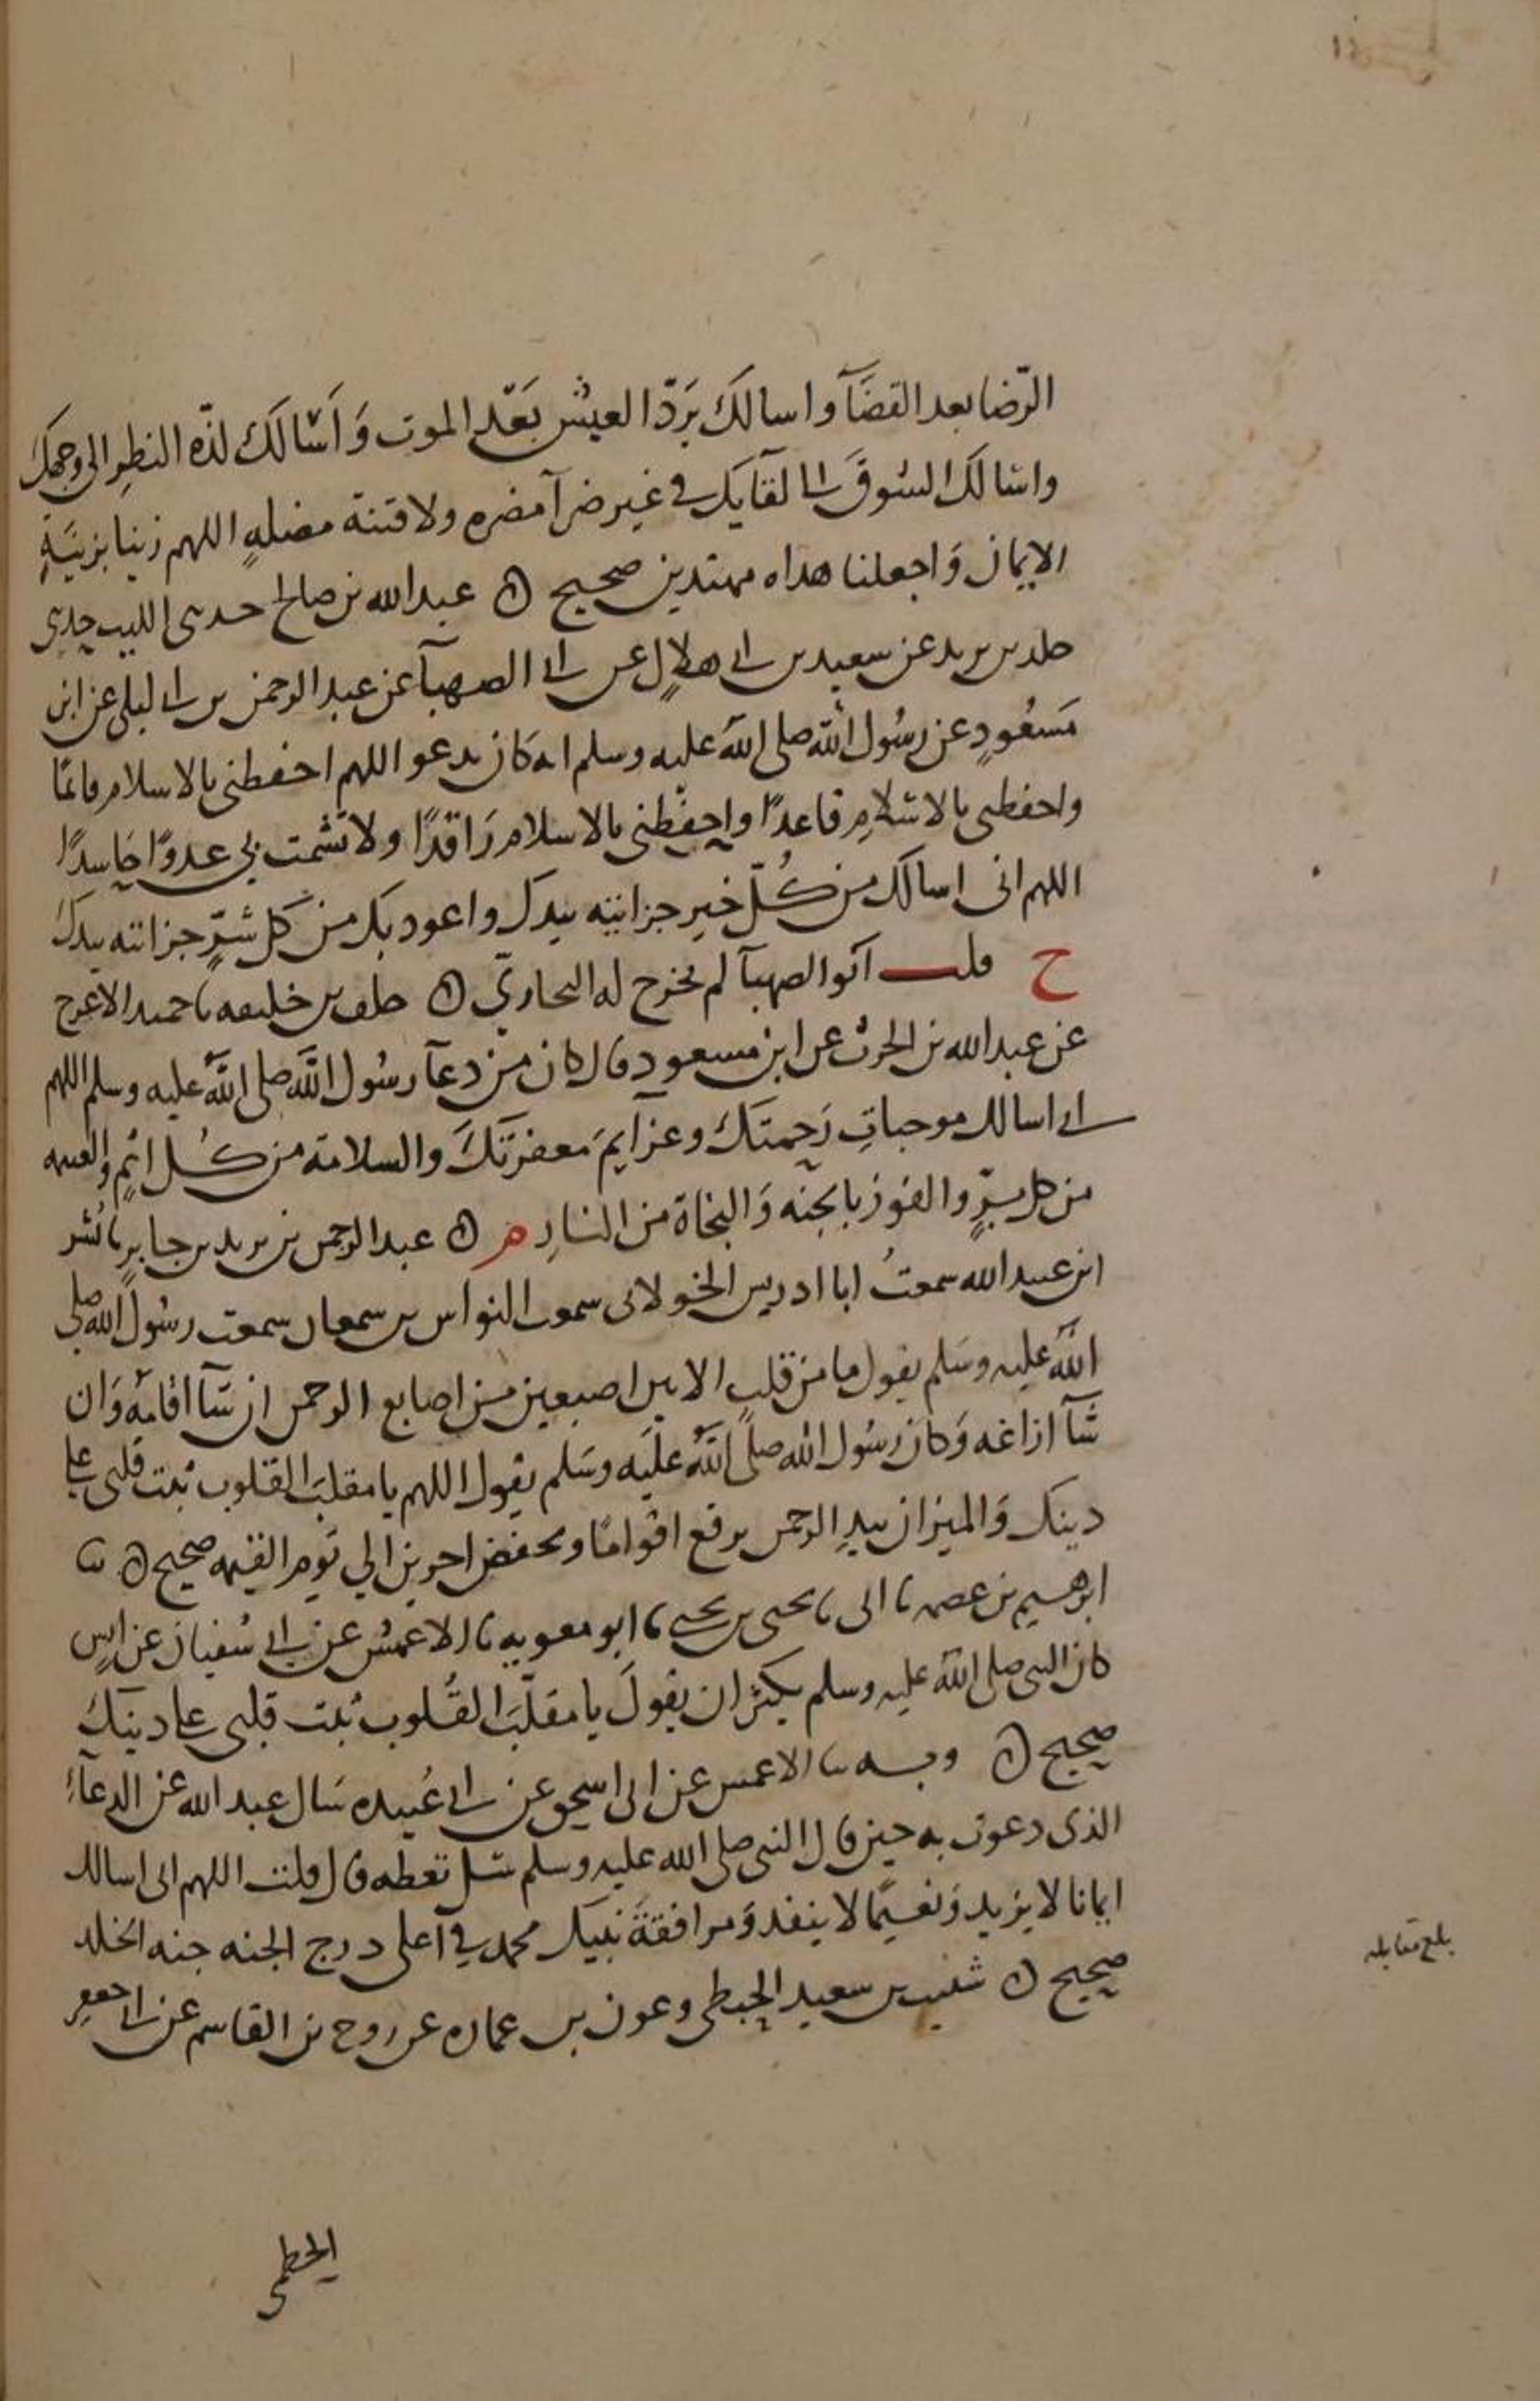 الرّضا بعد القضَآ واسالكَ بَردَ العيش بَعْد الموت وَاَسْالكَ لذّه النظرِ الى وجهكَ
واسالكَ الشوقَ الى لقآيك في غير ضرآ مضره ولا فتنة مضلهٍ اللهم زينا بزينَةِ
الايمان وَاجعلنا هداه مهتدين صحيح ه عبد الله بن صالح حدثنى الليث حدثنى
خلد بن يزيد عن سعيد بن ابى هلالٍ عن ابى الصهبآ عن عبد الرحمن بن ابى ليلى عن ابن
مَسعُودٍ عن رسُول الله صلى الله عليه وسلم انه كان يدعو اللهم احفظنى بالاسلام قائمًا
واحفظنى بالاسْلامِ قاعدًا واحفظنى بالاسلام رَاقدًا ولا تشمت بى عدوًا حَاسدًا
اللهم انى اسالك من كُلّ خيرٍ خزائنه بيدك واعوذ بك من كل شرٍّ خزائنه بيدكَ
خ قلت ابُو الصهبآ لم يخرج له البخاريّ ه خلف بن خليفه نا حميد الاعرج
عن عبد الله بن الحرث عن ابن مسعود قال كان من دعآ رسُول الله صلى الله عليه وسلم اللهم
انى اسالك موجباتِ رَحمتكَ وعزآيمَ مغفرتكَ والسلامة من كُل اثمٍ والغنيمه
من كل برٍّ والفوز بالجنه وَالنجاة من النارِ م ه عبد الرحمن بن يزيد بن جابرٍ نا بُسْر
ابن عبيد الله سمعتُ ابا ادريس الخولانى سمعت النواس بن سمعان سمعت رسُول الله صلى
الله عليه وسَلم يقول ما من قلبٍ الا بين اصبعين من اصابع الرحمن ان شآ اقامَهُ وَان
شآ ازاغه وَكان رسُول الله صلى اللهُ عليَه وسَلم يقول اللهم يا مقلبَ القلوب ثبت قلبى على
دينك وَالميزان بيدِ الرحمن يرفع اقوامًا ويخفض اخرين الي يَوم القيمه صحيح ه ثنا
ابرهيم بن عصمه نا ابى نا يحيى بن يحيى نا ابو معويه نا الاعمش عن ابى سُفيان عن انسٍ
كان النبى صلى الله عليه وسلم يكثر ان يقولَ يا مقلّبَ القُلوب ثبت قلبى على دينكَ
صحيح ه وبه نا الاعمش عن ابى اسحق عن ابى عُبيده سَال عبد الله عن الدعآءِ
الذى دعوت به حين قال النبى صلى الله عليه وسلم سَل تعطه قال قلت اللهم انى اسالك
ايمانا لا يزيد وَنعيمًا لا ينفد وَمرافقةَ نبيك محمد في اعلى درج الجنه جنه الخلد
صحيح ه شبيب بن سعيد الحبطى وعون بن عماره عن روح بن القاسم عن ابى جعفرٍ
الخطمى
بلغ مقابله